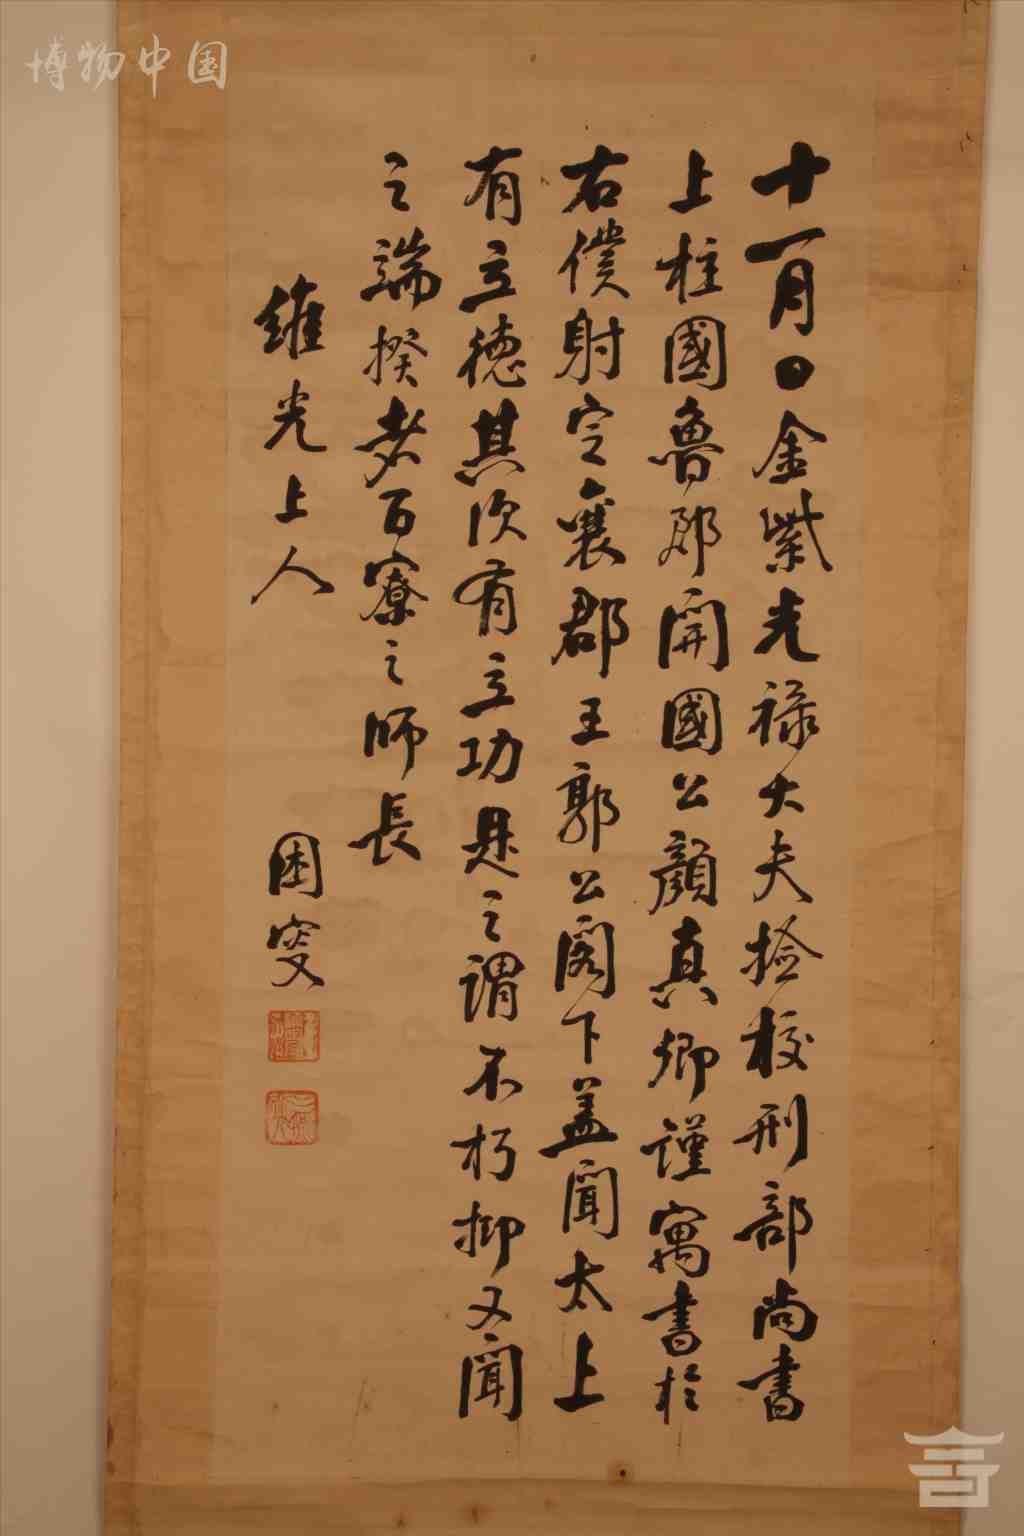 博物中国
十一月〇金紫光禄大夫捡校刑部尚書
上柱國魯郡開國公顔真卿謹寓書於
右僕射定襄郡王郭公閣下盖聞太上
有立徳其次有立功是之謂不朽抑又聞
之端揆者百寮之師長
維光上人
困叟